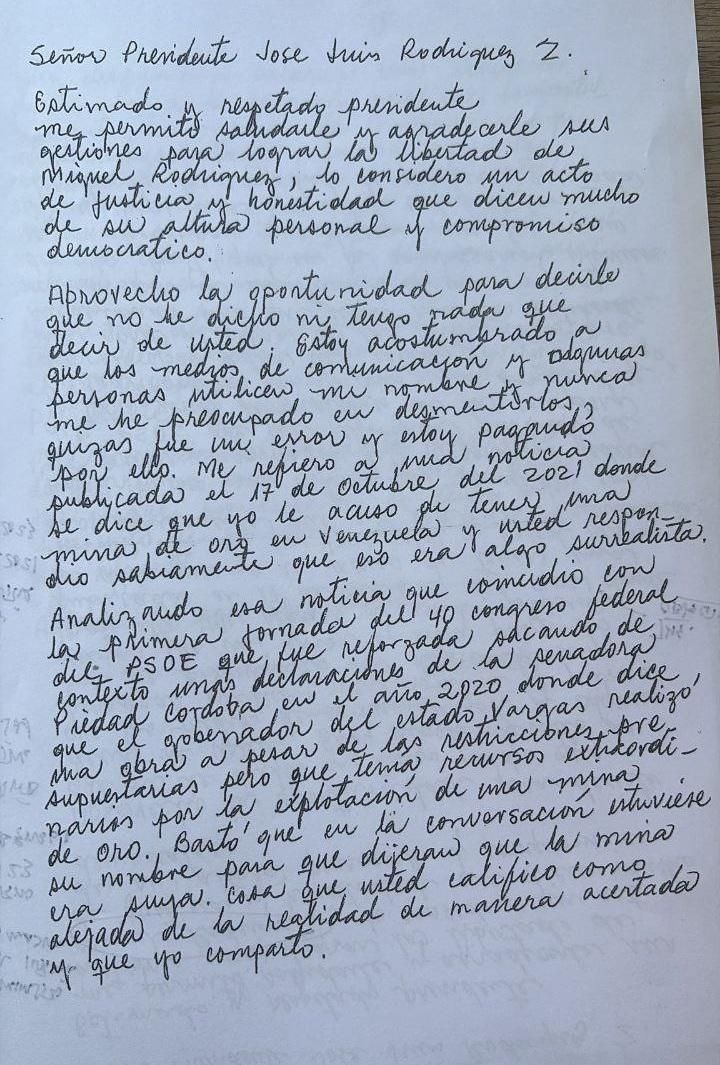 Señor Presidente Jose Luis Rodriguez Z.
Estimado y respetado presidente
me permito saludarle y agradecerle sus
gestiones para lograr la libertad de
Miguel Rodriguez, lo considero un acto
de justicia y honestidad que dicen mucho
de su altura personal y compromiso
democratico.
Aprovecho la oportunidad para decirle
que no he dicho ni tengo nada que
decir de usted. Estoy acostumbrado a
que los medios de comunicación y algunas
personas utilicen mi nombre y nunca
me he preocupado en desmentirlos,
quizas fue un error y estoy pagando
por ello. Me refiero a una noticia
publicada el 17 de Octubre del 2021 donde
se dice que yo le acuso de tener una
mina de oro en Venezuela y usted respon-
dio sabiamente que eso era algo surrealista.
Analizando esa noticia que coincidio con
la primera jornada del 40 congreso federal
del PSOE que fue reforzada sacando de
contexto unas declaraciones de la senadora
Piedad Cordoba en el año 2020 donde dice
que el gobernador del estado Vargas realizó
una obra a pesar de las restricciones pre-
supuestarias pero que tenia recursos extraordi-
narios por la explotación de una mina
de oro. Bastó que en la conversación estuviese
su nombre para que dijeran que la mina
era suya. Cosa que usted califico como
alejada de la realidad de manera acertada
y que yo comparto.